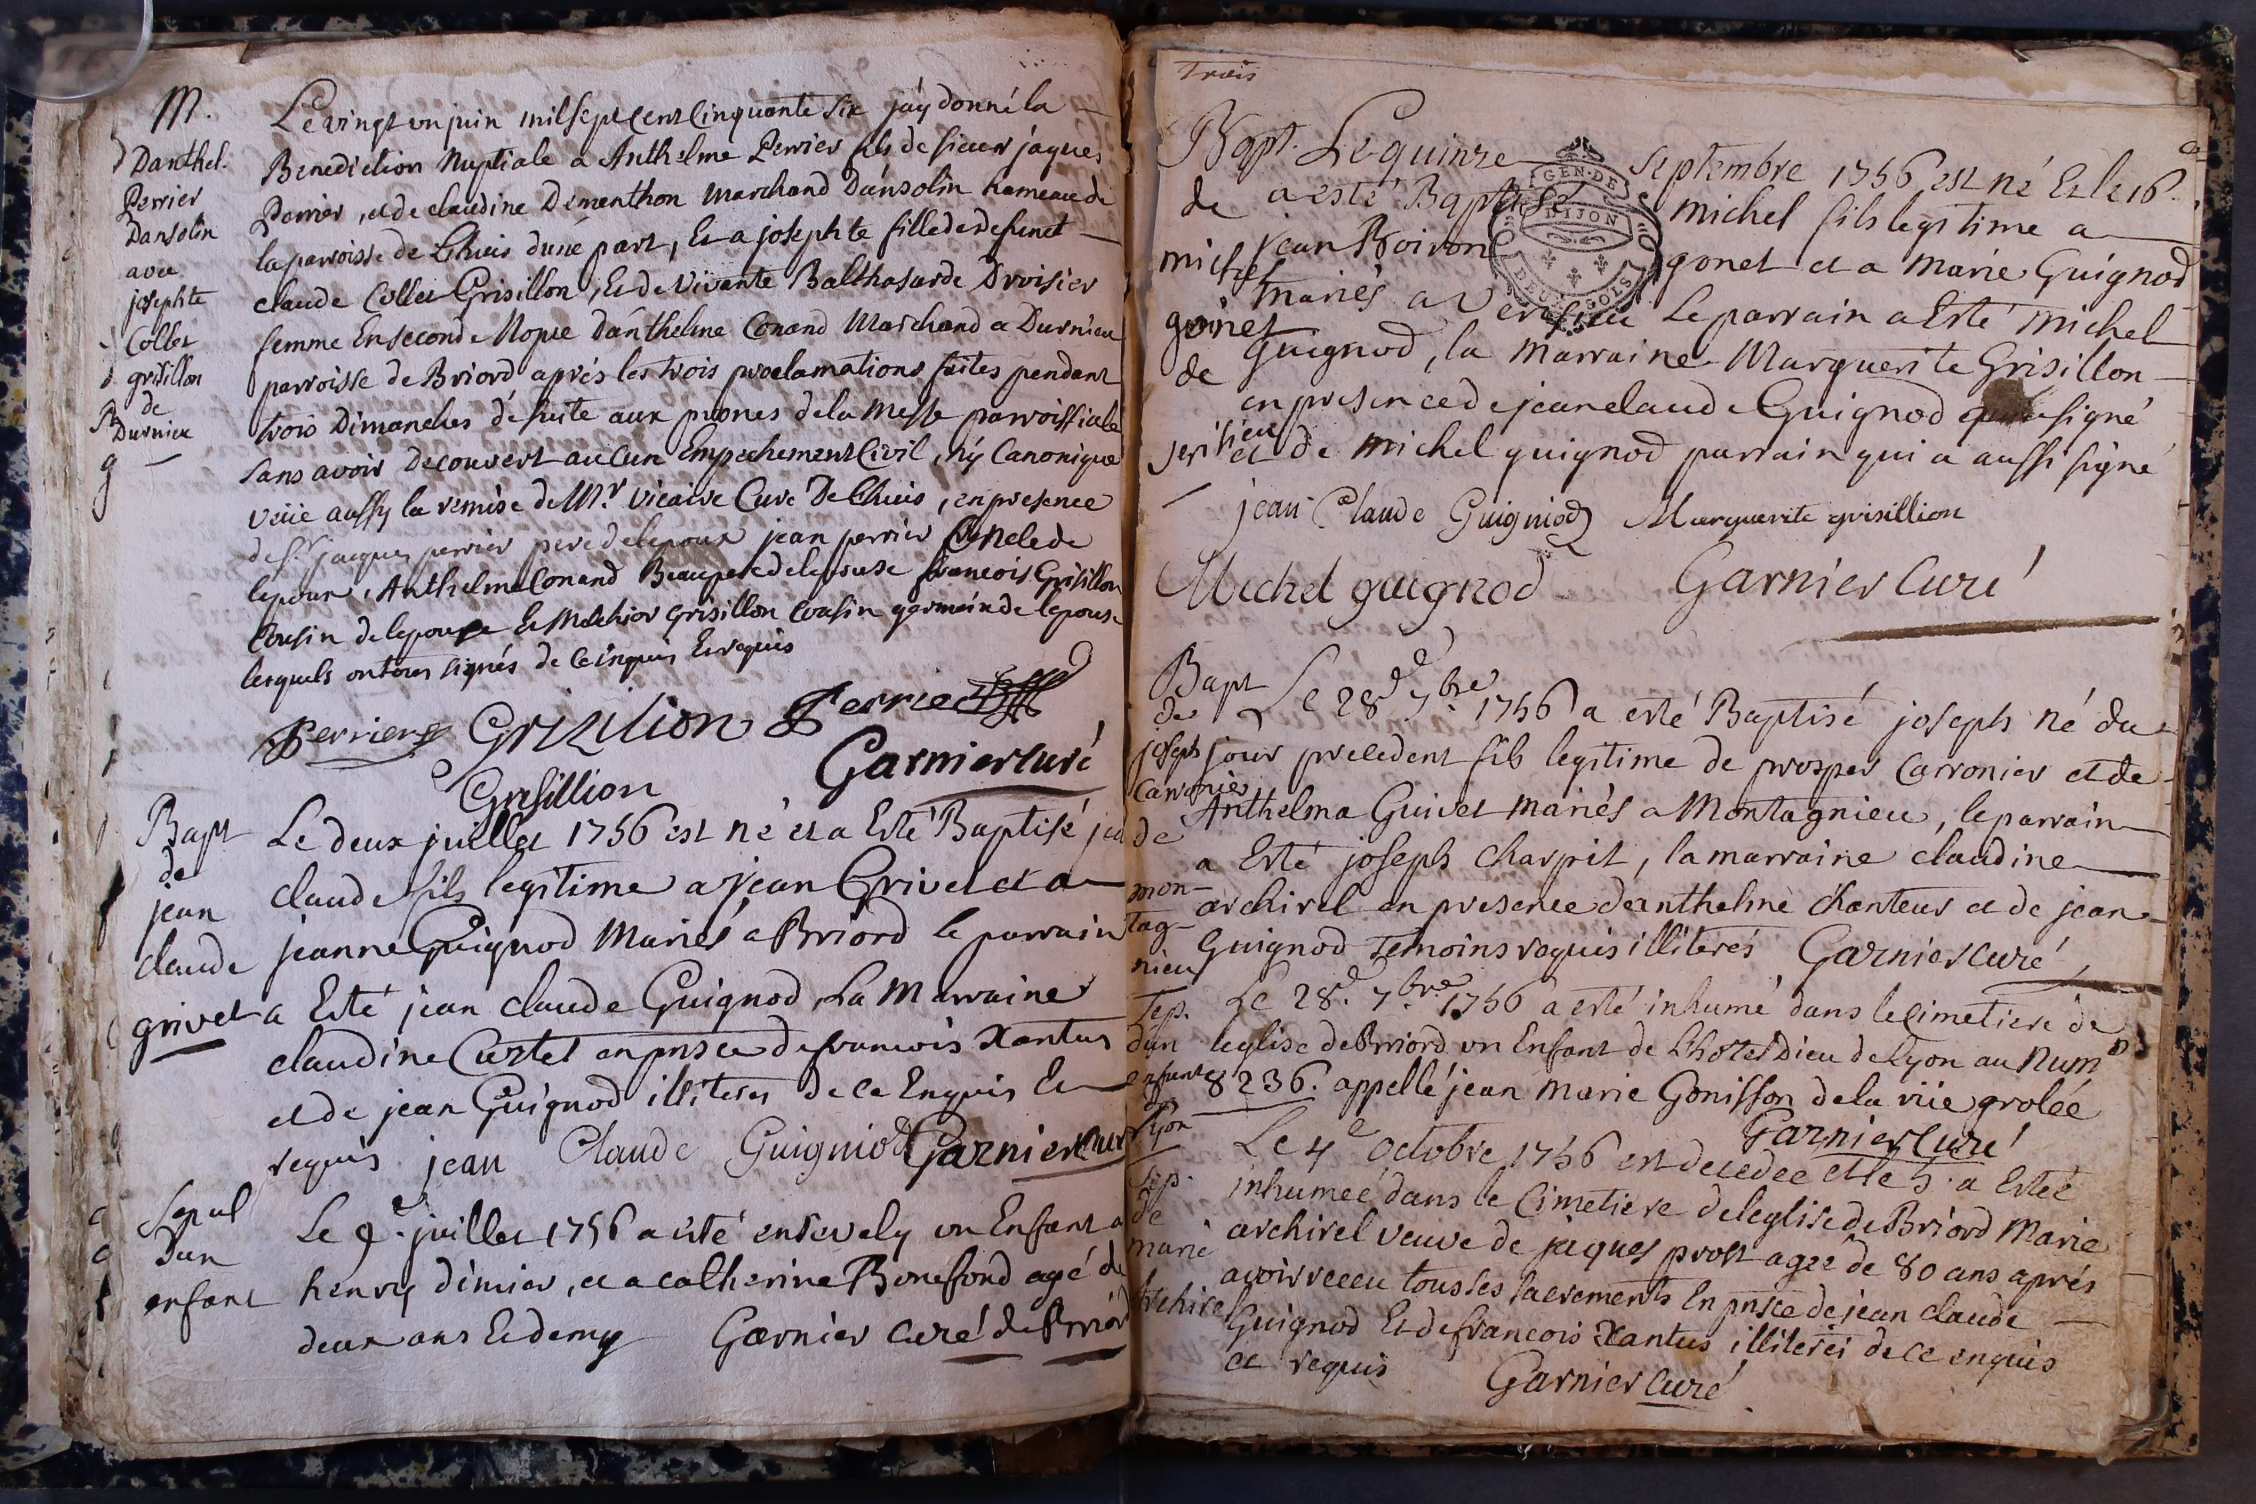 M.
Danthel.
Perrier
Dansolin
avec
josephte
Collet
grisillon
de
Durnieu
Le vingt un juin mil sept cent Cinquante Six j'ay donné la
Benediction Nuptiale a Anthelme Perrier fils de sieur jaques
Perrier, et de claudine Dementhon Marchand Dansolin hameau de
la parroisse de Lhuis d'une part, Et a josephte fille de defunct
claude Collet Grisillon, Et de vivante Balthasarde Droisier
femme En second Nopce d'anthelme Conand Marchand a Durnieu
parroisse de Briord aprés les trois proclamations faites pendant
trois Dimanches de suite aux prones de la Messe parroissiale
sans avoir decouvert aucun Empechement Civil, ny Canonique
veüe aussy la remise de Mr. vicaire Curé De Lhuis, en presence
de sr jacques perrier pere de lepoux jean perrier Oncle de
lepoux, Anthelme Conand Beaupere de lepouse francois Grisillon
Cousin de lepouse Et Melchior Grisillon Cousin germain de lepouse
lesquels ont tous signés de ce enquis Et requis
Perrier Grizilion Perrier
Grisillion Garnier curé
Bapt
de
jean
claude
grivet
Le deux juillet 1756 est né et a Esté Baptisé jea
claude fils legitime a jean Grivet et a
jeanne Guignod Mariés a Briord le parrain
a Esté jean claude Guignod, La Marraine
claudine Curtet en pnsce de francois Xantus
et de jean Guignod illiteres de ce Enquis Et
requis jean Claude Guigniod Garnier curé
Sepul
Dun
enfant
Le 9e. juillet 1756 a esté ensevely un Enfant a
henry dimier, et a catherine Bonnefond agé de
deux ans Et demy Garnier curé de Briord
Trois
Bapt.
de
michel
gonet
de
verisieu
Le quinze Septembre 1756 est né Et le 16
a esté Baptisé Michel fils legitime a
jean Boiron gonet et a Marie Guignod
mariés a Verisieu Le parrain a Esté Michel
Guignod, la Marraine Marguerite Grisillon
en presence de jean claude Guignod signé
et de Michel guignod parrain qui a aussi signé
GEN. DE
DIJON
DEUX SOLS
jean Claude Guigniod Marguerite grisillion
Michel guignod Garnier Curé
Bapt
de
joseph
Carronier
de
mon-
tag-
nieu
Le 28e 7bre 1756 a esté Baptisé joseph né du
jour precedent fils legitime de prosper Carronier et de
Anthelma Guivet Mariés a Montagnieu, le parrain
a Esté joseph Charpit, la marraine claudine
archirel en presence d'anthelme Chanteur et de jean
Guignod Temoins requis illiterés Garnier curé
Sep.
dun
enfant
de
Lyon
Le 28e. 7bre. 1756 a esté inhumé dans le Cimetiere de
leglise de Briord un Enfant de Lhotel Dieu de Lyon au num
8236. appellé jean Marie Gonisson de la rüe grolée
Garnier Curé
Sep.
de
marie
Archirel
Le 4e octobre 1756 est decedée et le 5. a Esteé
inhumeé dans le Cimetiere de leglise de Briord Marie
archirel veuve de jaques prost ageé de 80 ans aprés
avoir receu tous ses sacrements En pnsce de jean claude
Guignod Et de francois Xantus illiterés de ce enquis
et requis Garnier curé